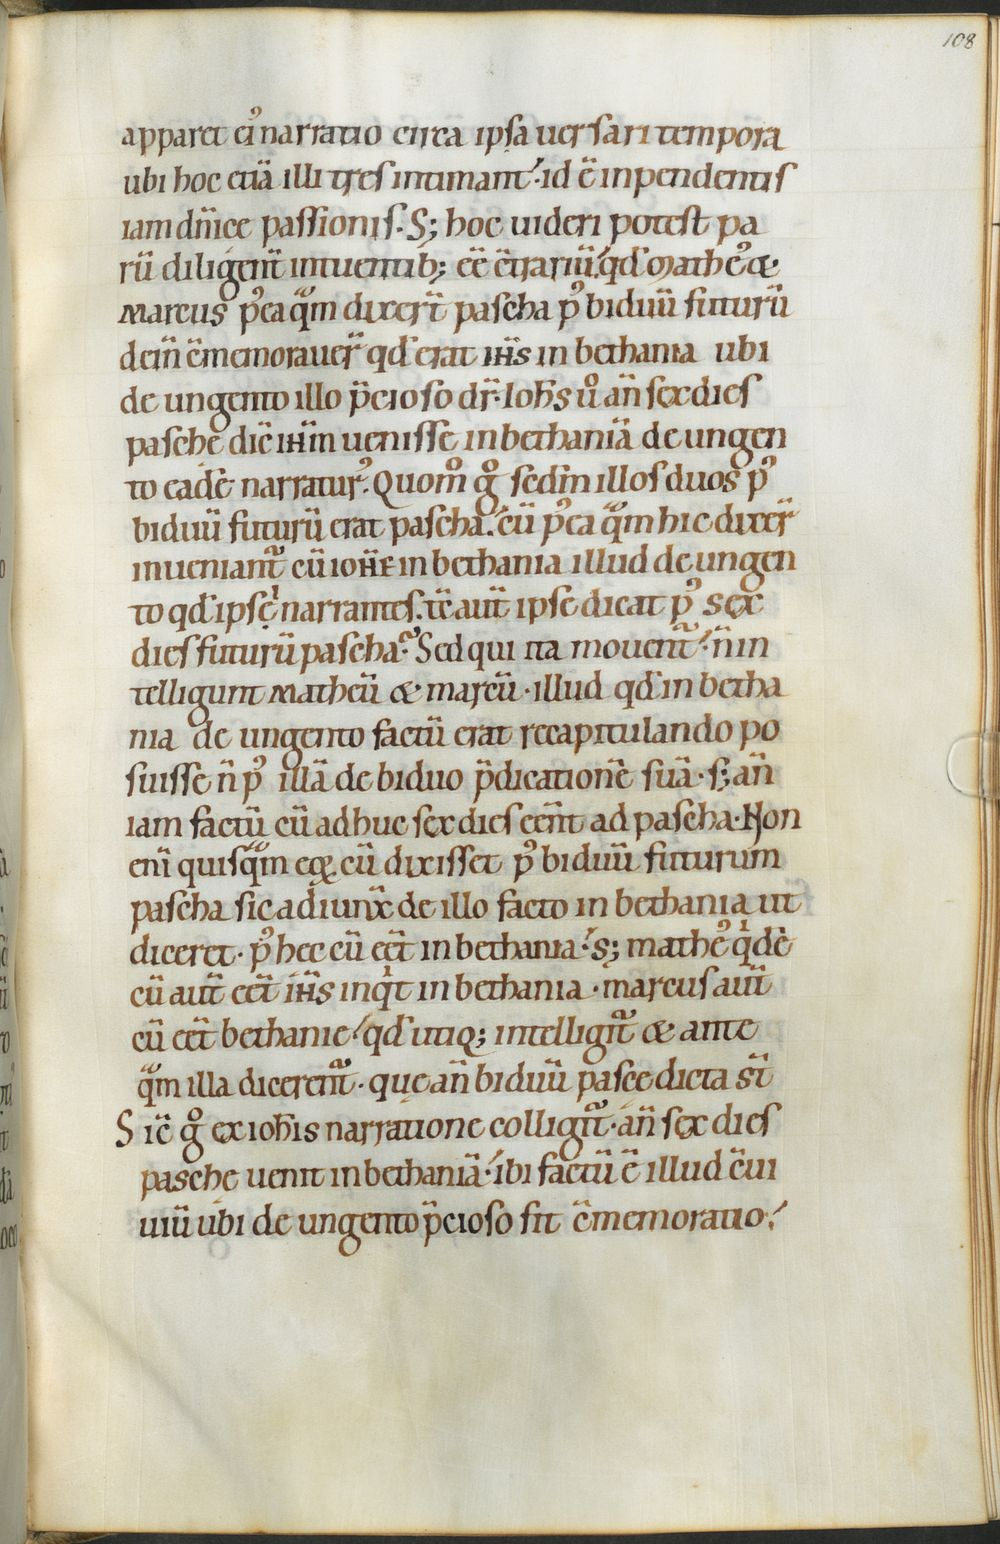 108
apparet ei᾽ narratio circa ipsa uersari tempora
ubi hoc etiā illi tres intimant. id ē inpendentis
iam dn̄ice passionis. S; hoc uideri potest pa
rū diligent̄ intuentib; eē c̄trariū. qd̄ mathe᾽ &
marcus p᾽ea qͣm dixer̄t pascha p᾽ biduū futurū
dein̄ c̄memorauer̄ qd̄ erat ih̄s in bethania ubi
de ungento illo p̄cioso dr̄. Ioh̄s ů an̄ sex dies
pasche dic̄ ih̄m uenisse in bethaniā de ungen
to eadē narratur᾽. Quom̊ g̊ sedm̄ illos duos p᾽
biduū futurū erat pascha. cū p᾽ea qͣm hic dixer̄
inueniant᾽ cū ioh̄e in bethania illud de ungen
to qd̄ ipsę narrantes. tc̄ aut̄ ipse dicat p᾽ sex
dies futurū pascha? Sed qui ita mouent᾽. n̄ in
telligunt matheū & marcū. illud qd̄ in betha
nia de ungento factū erat recapitulando po
suisse n̄ p᾽ illā de biduo p̄dicationē suā. s; an̄
iam factū cū adhuc sex dies eēnt ad pascha. Non
enī quisqͣm eoꝝ cū dixisset p᾽ biduū futurum
pascha sic adiunx̄ de illo facto in bethania ut
diceret. p᾽ hec cū eēt in bethania. s; mathe᾽ qͥdē
cū aut̄ eēt ih̄s inqͥt in bethania. marcus aut̄
cū eēt bethanie. qd̄ utiq; intelligit᾽ & ante
qͣm illa dicerent᾽. que an̄ biduū pasce dicta st̄
Sic̄ g̊ ex ioh̄is narratione colligit᾽. an̄ sex dies
pasche uenit in bethaniā. ibi factū ē illud c̄ui
uiū ubi de ungento p̄cioso fit c̄memoratio.